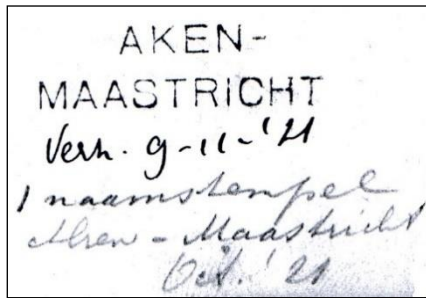 AKEN-
MAASTRICHT
Verh. 9-11-'21
1 naamstempel
Aken - Maastricht
Oct. '21